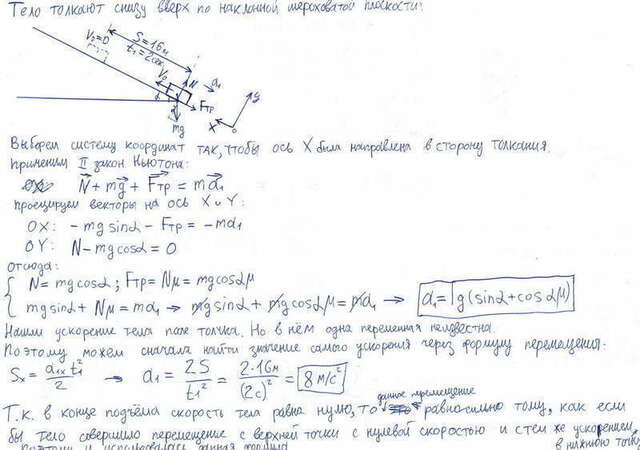 Тело толкают снизу вверх по наклонной шероховатой плоскости:
S=16м
V₂=0
t₁=2сек
V₀ N a₁
Fтр
α
mg
y
x
Выберем систему координат так, чтобы ось X была направлена в сторону толкания.
Применим II закон Ньютона:
N + mg + Fтр = ma₁
проецируем векторы на ось X и Y:
OX: -mg sinα - Fтр = -ma₁
OY: N - mg cosα = 0
отсюда:
N = mg cosα ; Fтр = Nμ = mg cosα μ
mg sinα + Nμ = ma₁ → mg sinα + mg cosα μ = ma₁ → a₁ = g(sinα + cosα μ)
Нашли ускорение тела после толчка. Но в нём одна переменная неизвестна.
Поэтому можем сначала найти значение самого ускорения через формулу перемещения:
Sₓ = a₁ₓt₁²/2 → a₁ = 2S/t₁² = 2·16м/(2с)² = 8 м/с²
данное перемещение
Т.к. в конце подъёма скорость тела равна нулю, то равно-сильно тому, как если
бы тело совершило перемещение с верхней точки с нулевой скоростью и с тем же ускорением
в нижнюю точку
Поэтому и использовалась данная формула